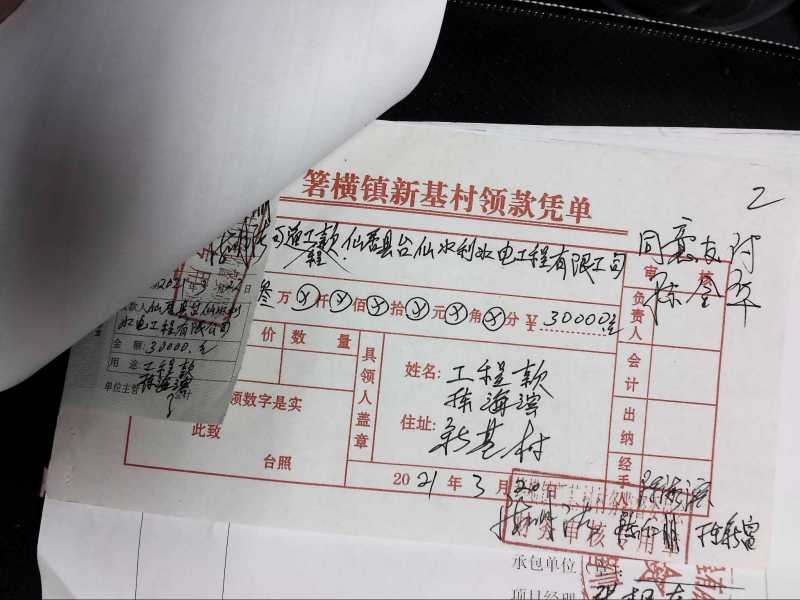 箬横镇新基村领款凭单
2
工程款 仙居县台仙水利水电工程有限公司
同意支付
审核
叁万仟佰拾元角分 ¥30000.元
负责人
价 数量
具领人盖章
姓名: 工程款
陈海滨
会计
住址: 新基村
出纳
领数字是实
此致
台照
2021年3月20日
经手人
财务审核专用章
2021
款人 仙居县台仙水利
水电工程有限公司
金额: 30000.元
用途: 工程款
单位主管 陈海滨
承包单位
项目经理